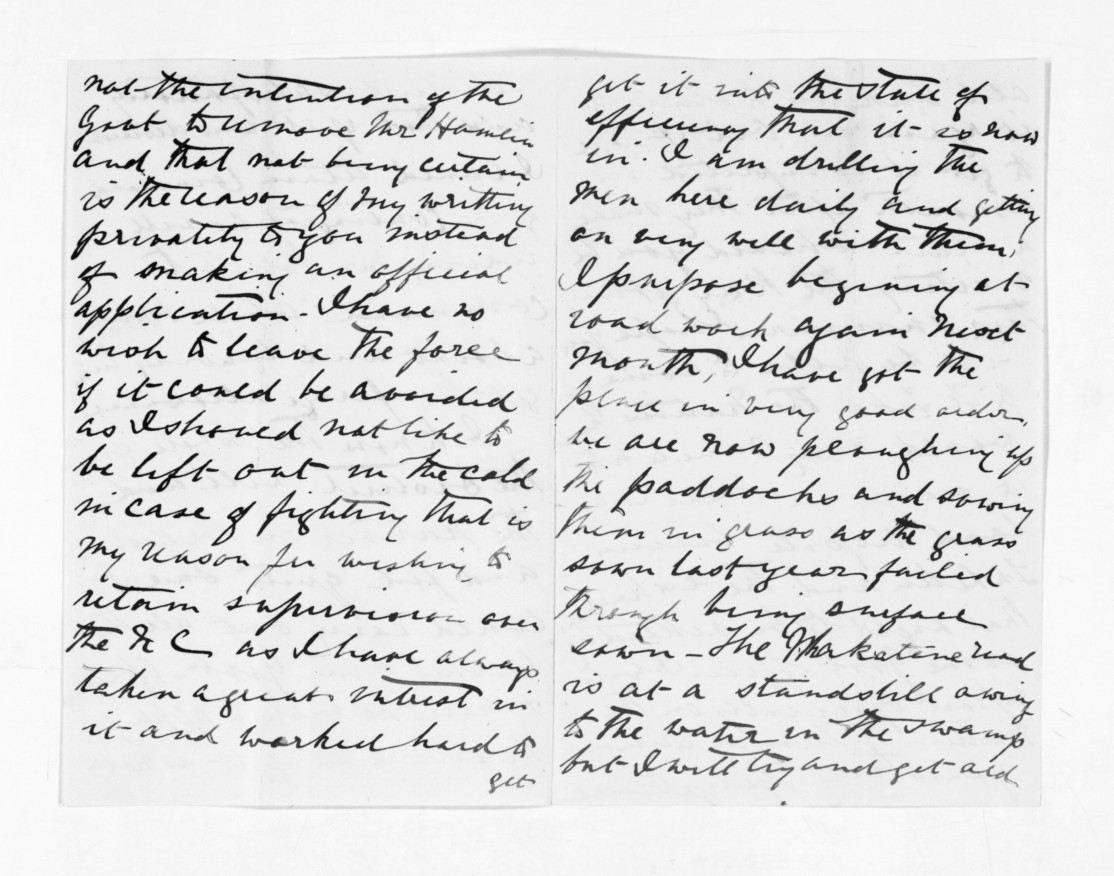 not the intention of the
Govt to remove Mr Hamlin
and that not being certain
is the reason of my writting
privatily to you instead
of making an official
application - I have no
wish to leave the force
if it could be avoided
as I should not like to
be left out in the cold
in case of fighting that is
my reason for wishing to
retain supervision over
the N C as I have always
taken a great intrest in
it and worked hard to
get
get it into the state of
efficiency that it is now
in. I am drilling the
men here daily and getting
on very well with them,
I purpose begining at
road work again next
month, I have got the
place in very good order,
we are now ploughing up
the paddocks and sowing
them in grass as the grass
sown last year failed
through being surface
sown - The road
is at a standstill owing
to the water in the swamp
but I will try and get